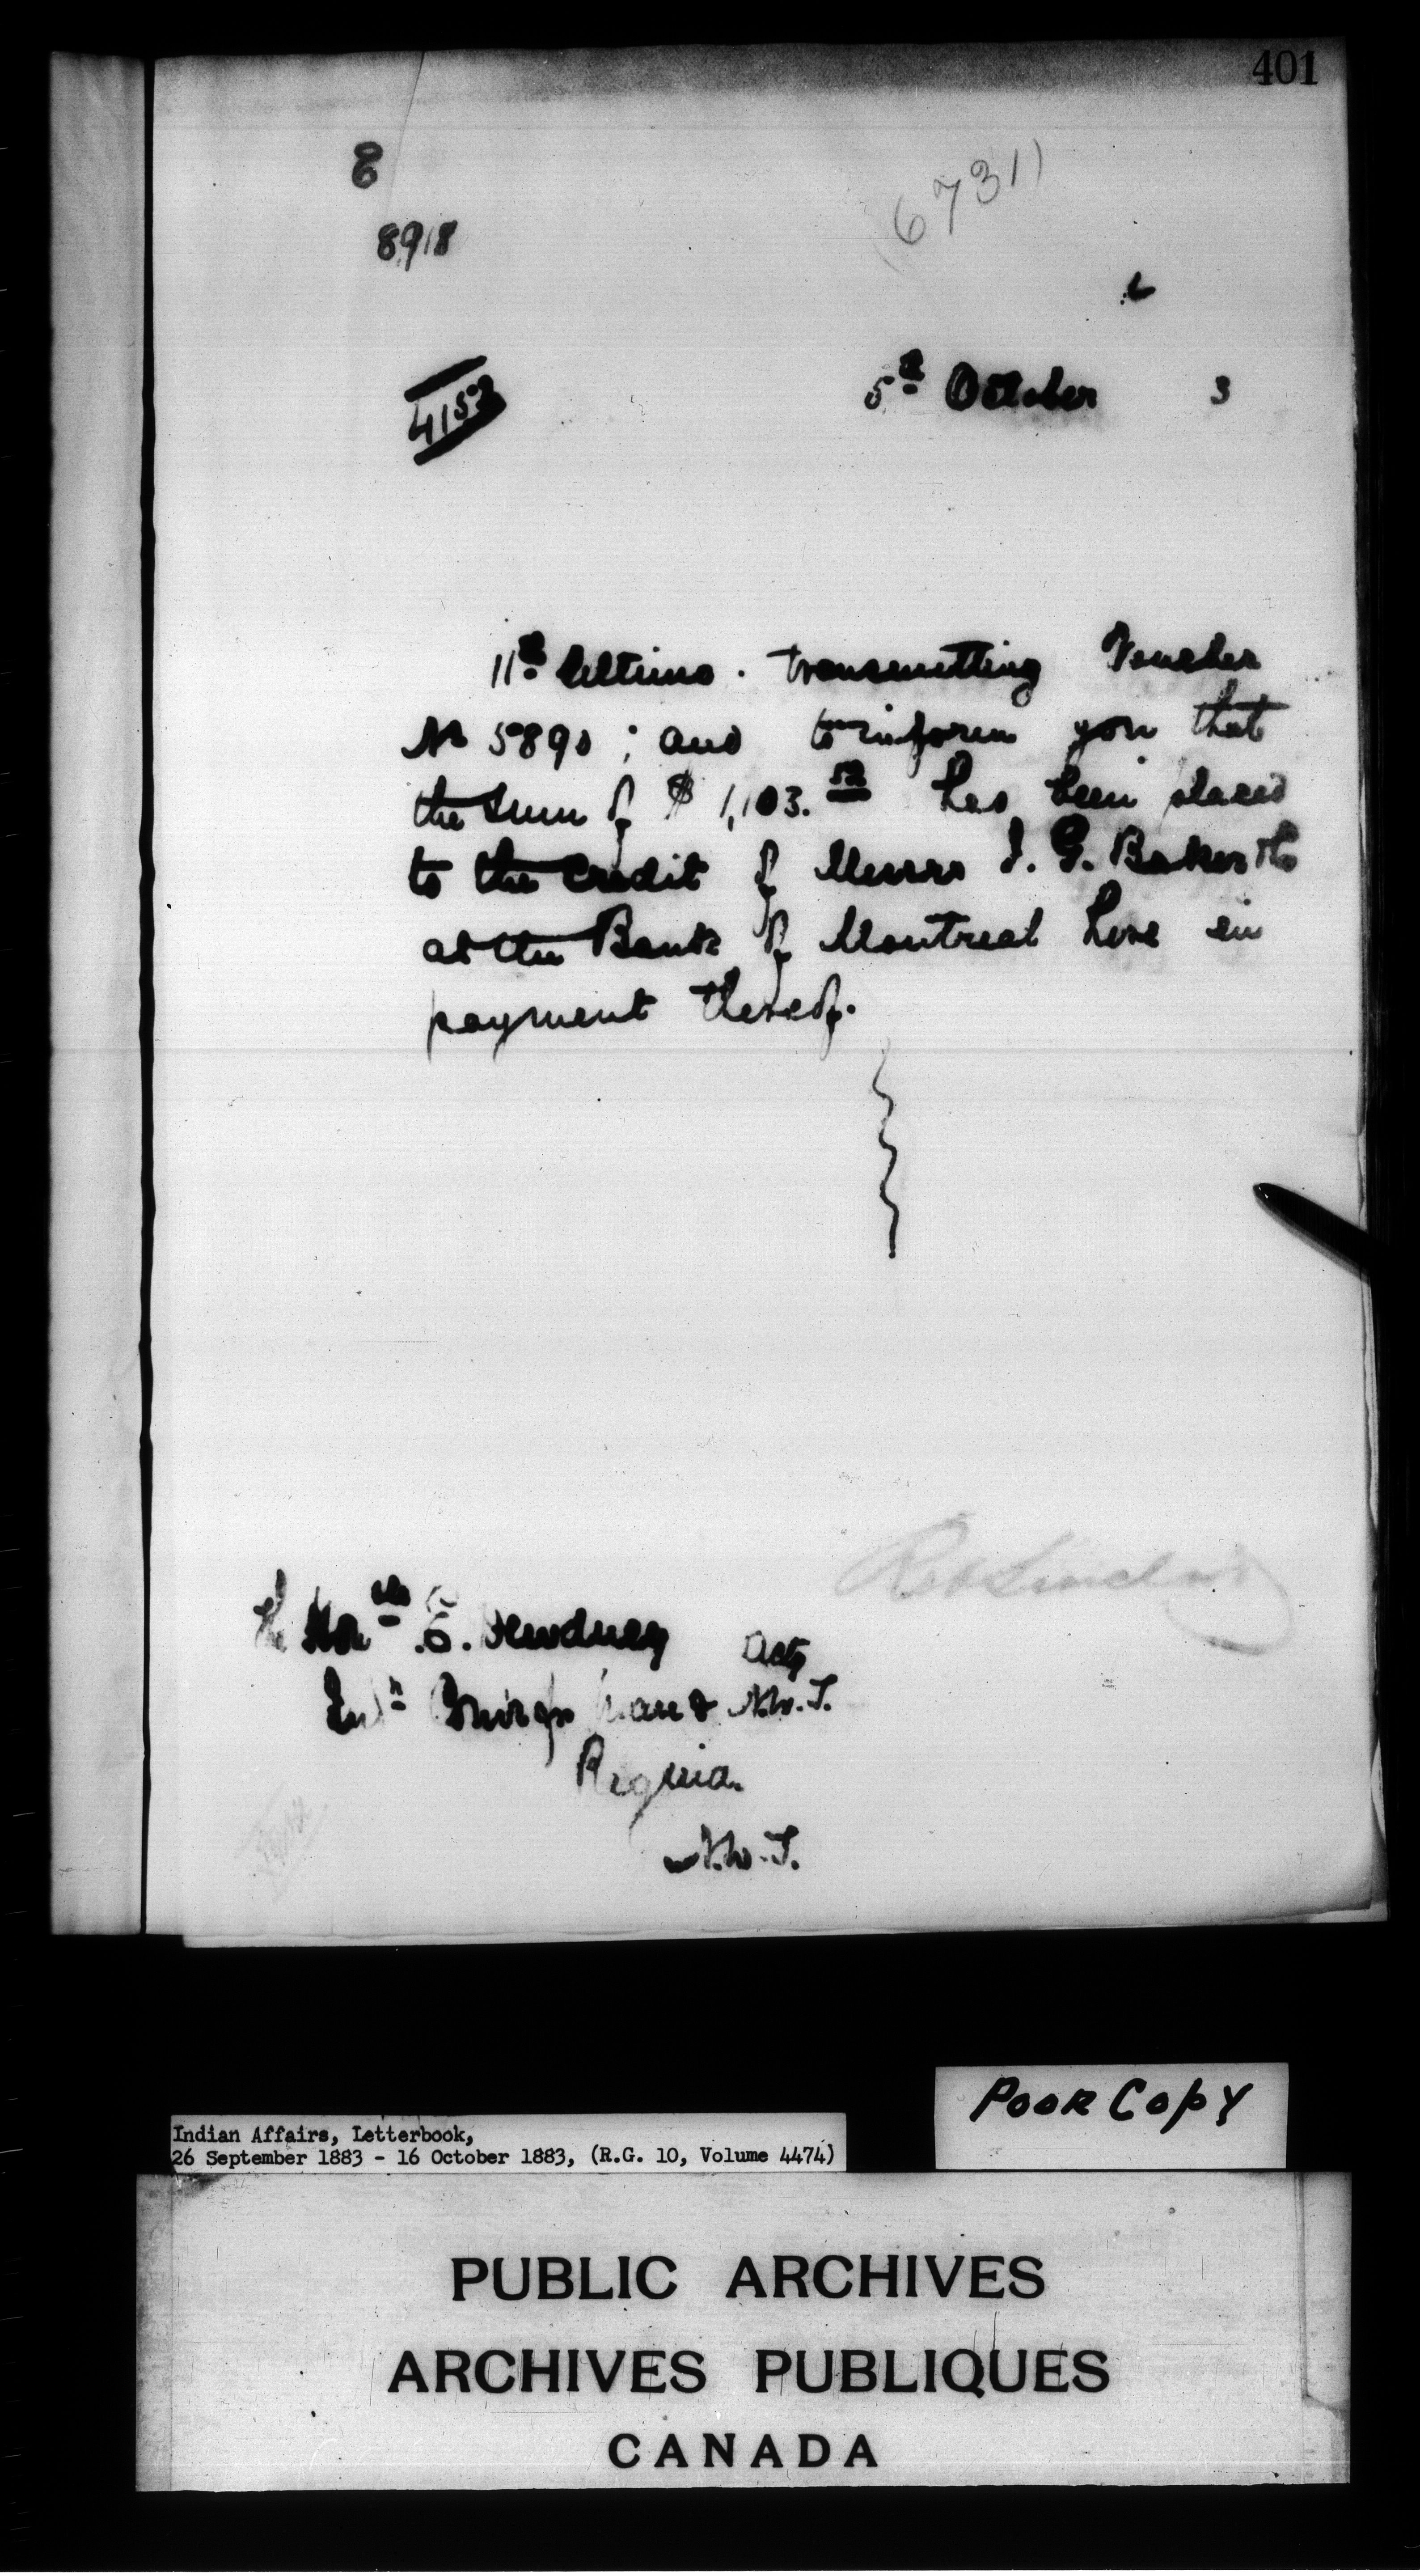 401
E
8918
(6731)
4152
5th October 3
11th Ultimo. transmitting Voucher
No 5890; and to inform you that
the sum of $1,103.50 has been placed
to the credit of Messrs I. G. Baker & Co
at the Bank of Montreal here in
payment thereof.
Rob Sinclair
The Honble E. Dewdney
Actg
Indn Comr for Man & N.W.T.
Regina.
N.W.T.
Poor Copy
Indian Affairs, Letterbook,
26 September 1883 - 16 October 1883, (R.G. 10, Volume 4474)
PUBLIC ARCHIVES
ARCHIVES PUBLIQUES
CANADA